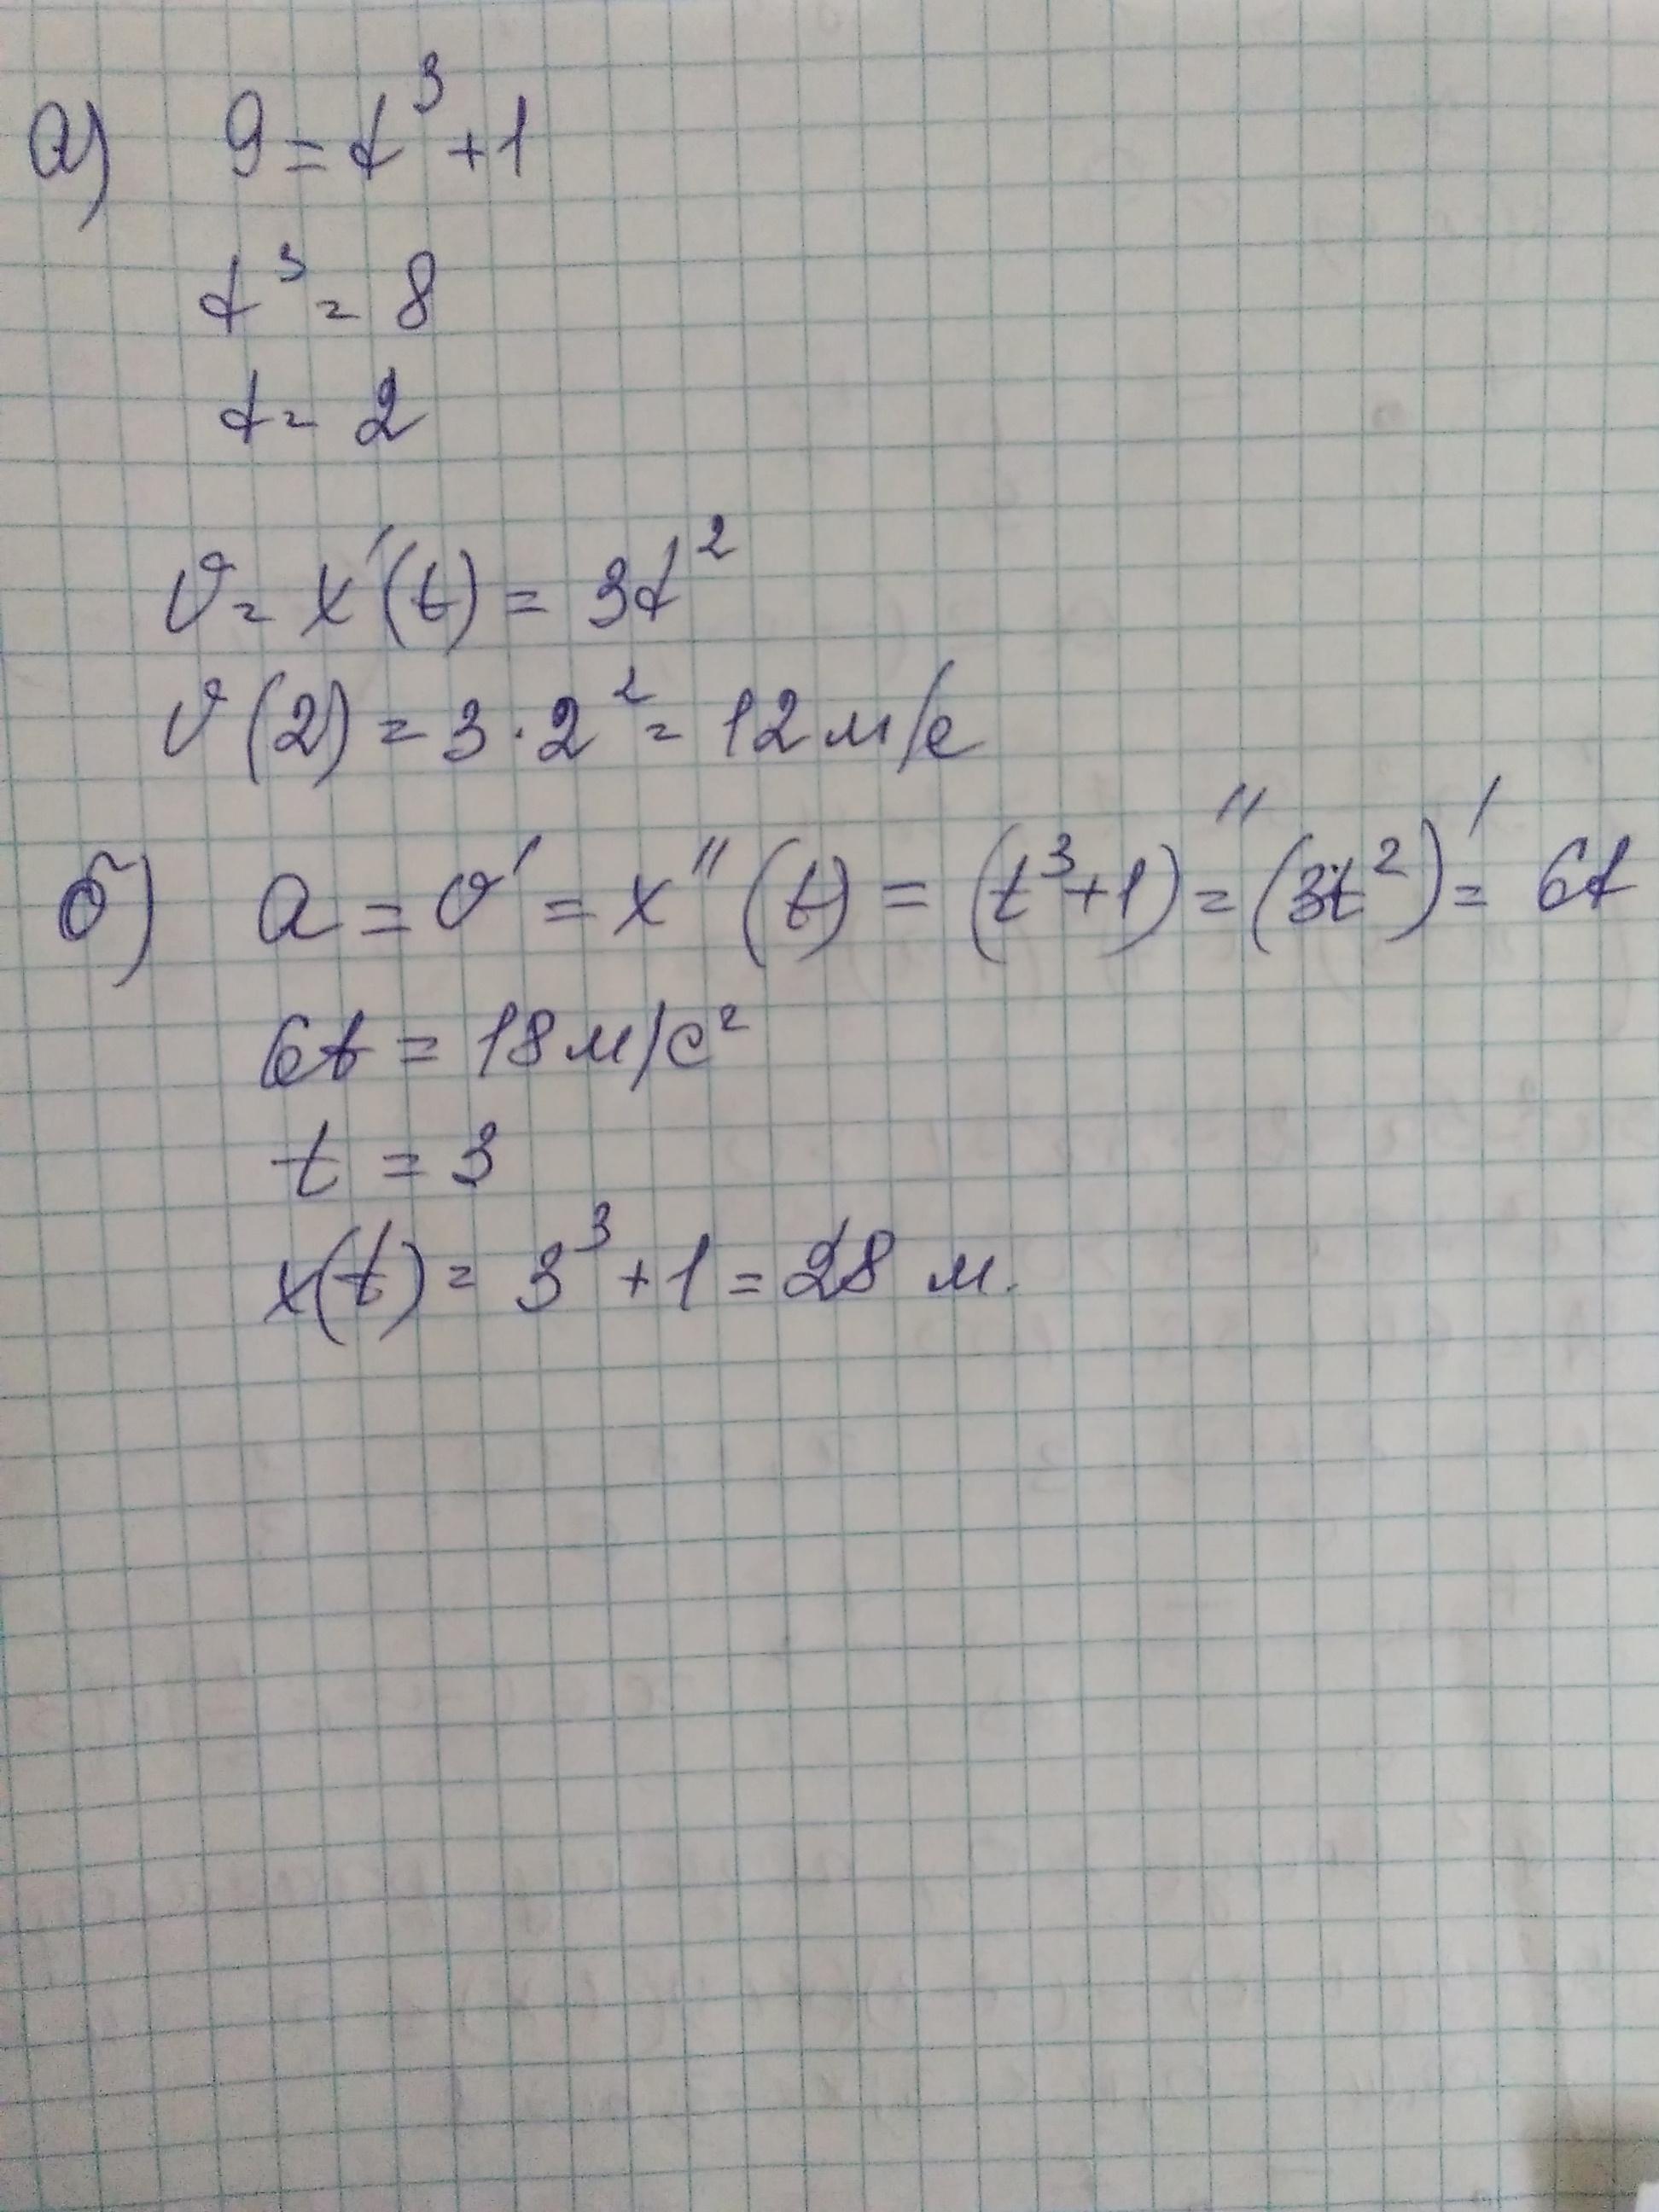 а) 9 = t³ + 1
t³ = 8
t = 2
v = x'(t) = 3t²
v(2) = 3 · 2² = 12 м/с
б) a = v' = x''(t) = (t³+1)'' = (3t²)' = 6t
6t = 18 м/с²
t = 3
x(t) = 3³ + 1 = 28 м.